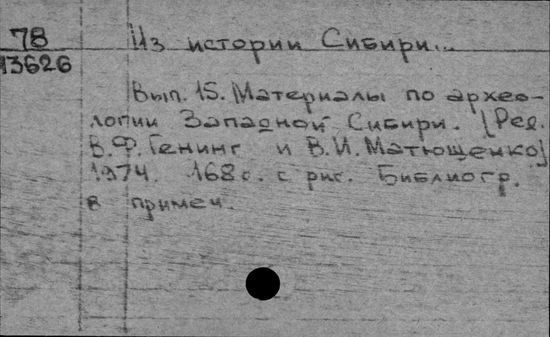 78
13626
Из истории Сибири...
Вып. 15. Материалы по архео-
логии Западной Сибири. [Ред.
В.Ф. Генинг и В.И. Матющенко]
1974. 168 с. с рис. Библиогр.
в примеч.